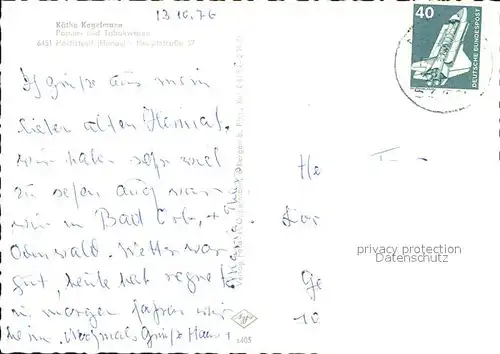 13.10.76
Käthe Kegelmann
Papier- und Tabakwaren
6451 Hochstadt (Hanau) - Hauptstraße 17
40
DEUTSCHE BUNDESPOST
Ich grüße aus mein
lieben alten Heimat,
wir haben sehr viel
zu sehen auch waren
wir in Bad Orb, +
Odenwald. Wetter war
gut, heute hat regnet
u. morgen fahren wir
heim. Nochmals Grüße Hans +
Maria
He
Ge
privacy protection
Datenschutz